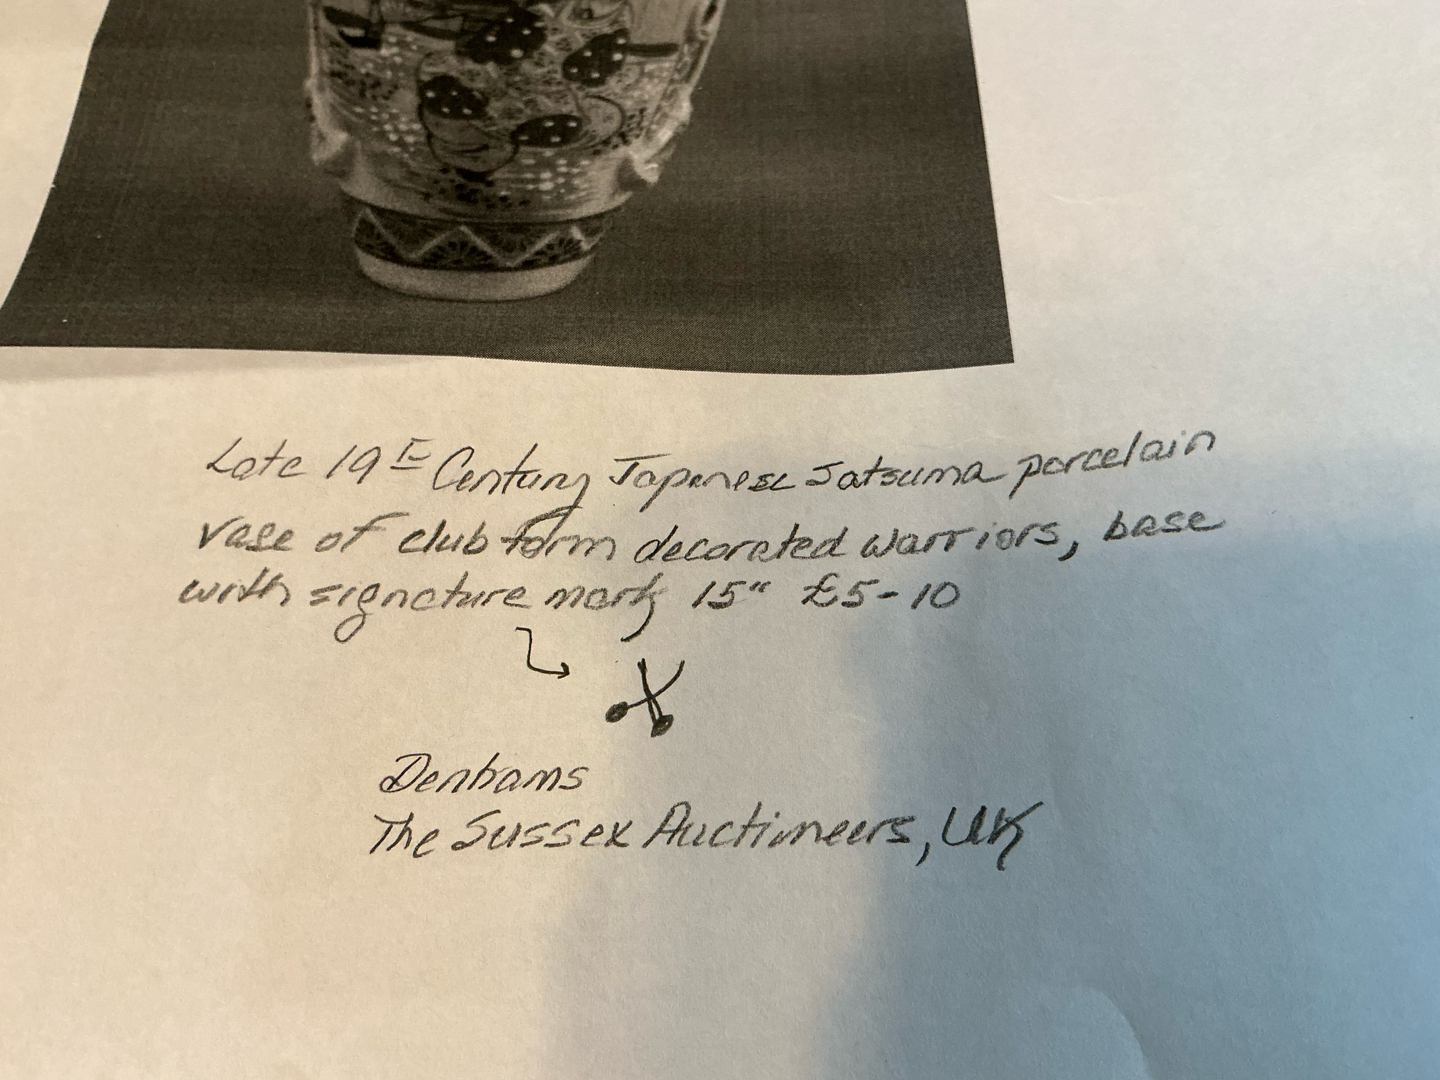 Late 19th Century Japanese Satsuma porcelain
vase of club form decorated warriors, base
with signature mark 15" £5-10
Denhams
The Sussex Auctioneers, UK